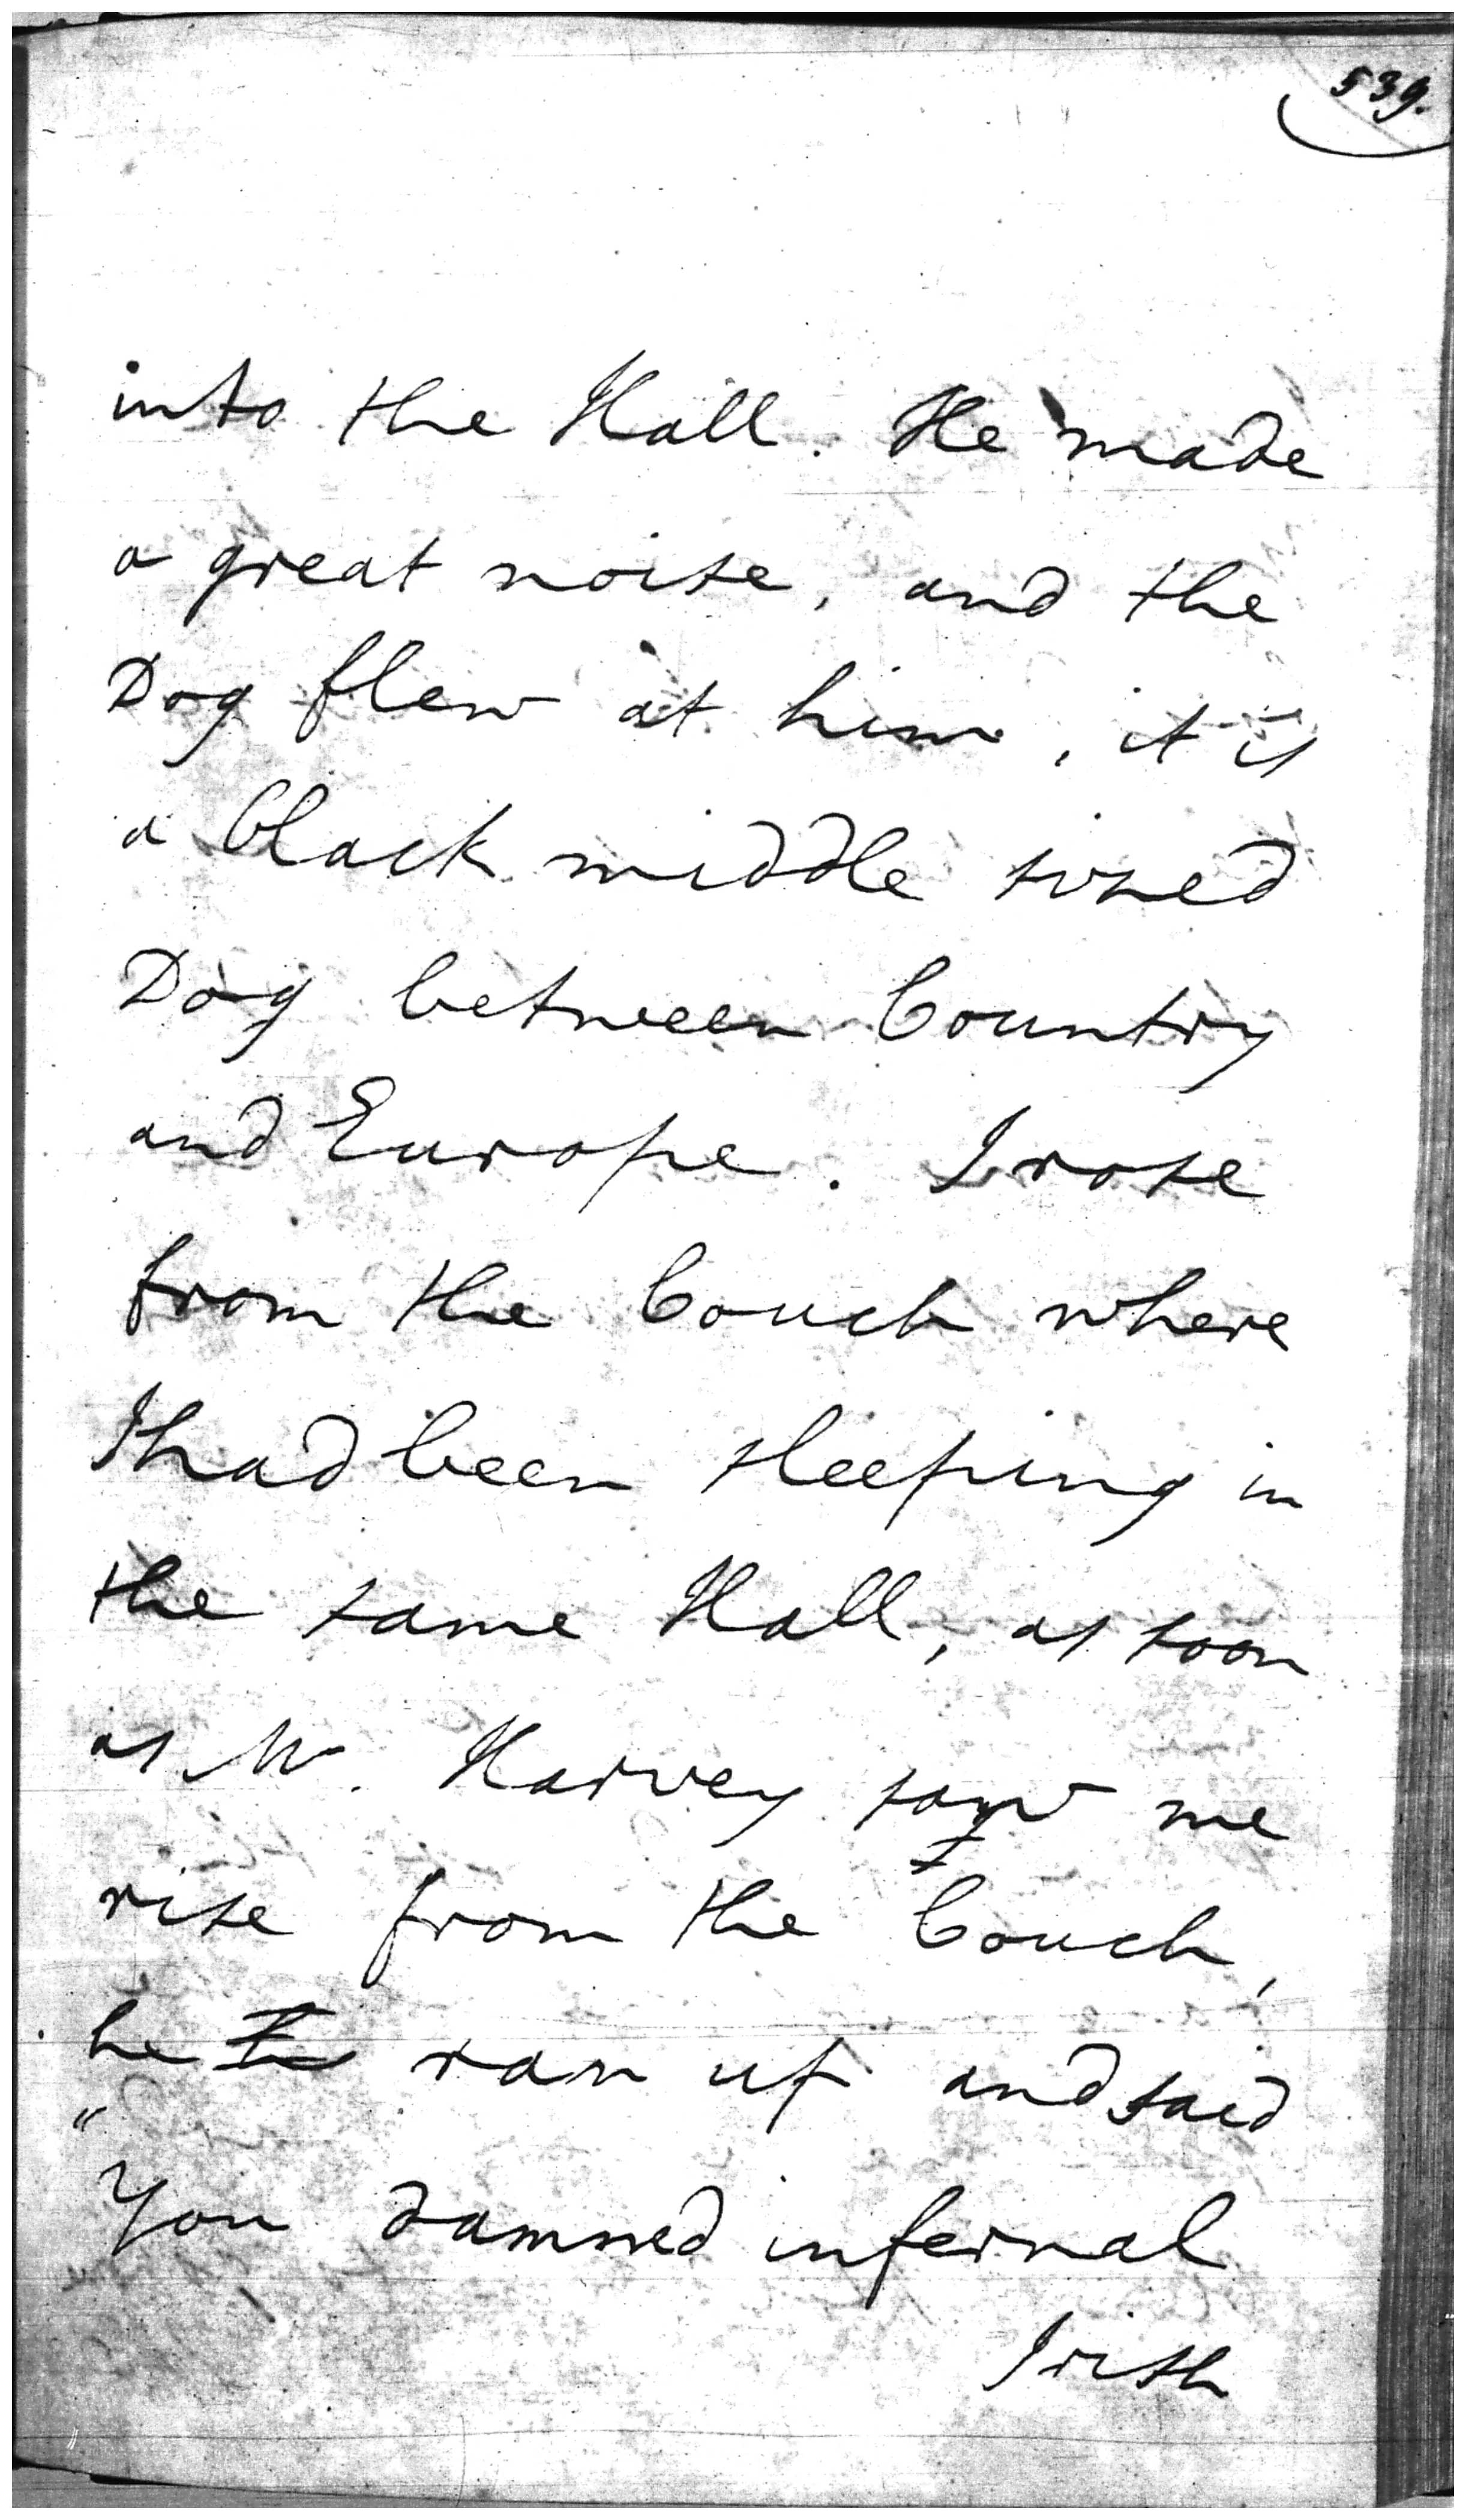 539.
into the Hall. He made
a great noise, and the
Dog flew at him, it is
a black middle sized
Dog between Country
and Europe. I rose
from the Couch where
I had been sleeping in
the same Hall, as soon
as Mr. Harvey saw me
rise from the Couch,
he ran up and said
"You damned infernal
Irish